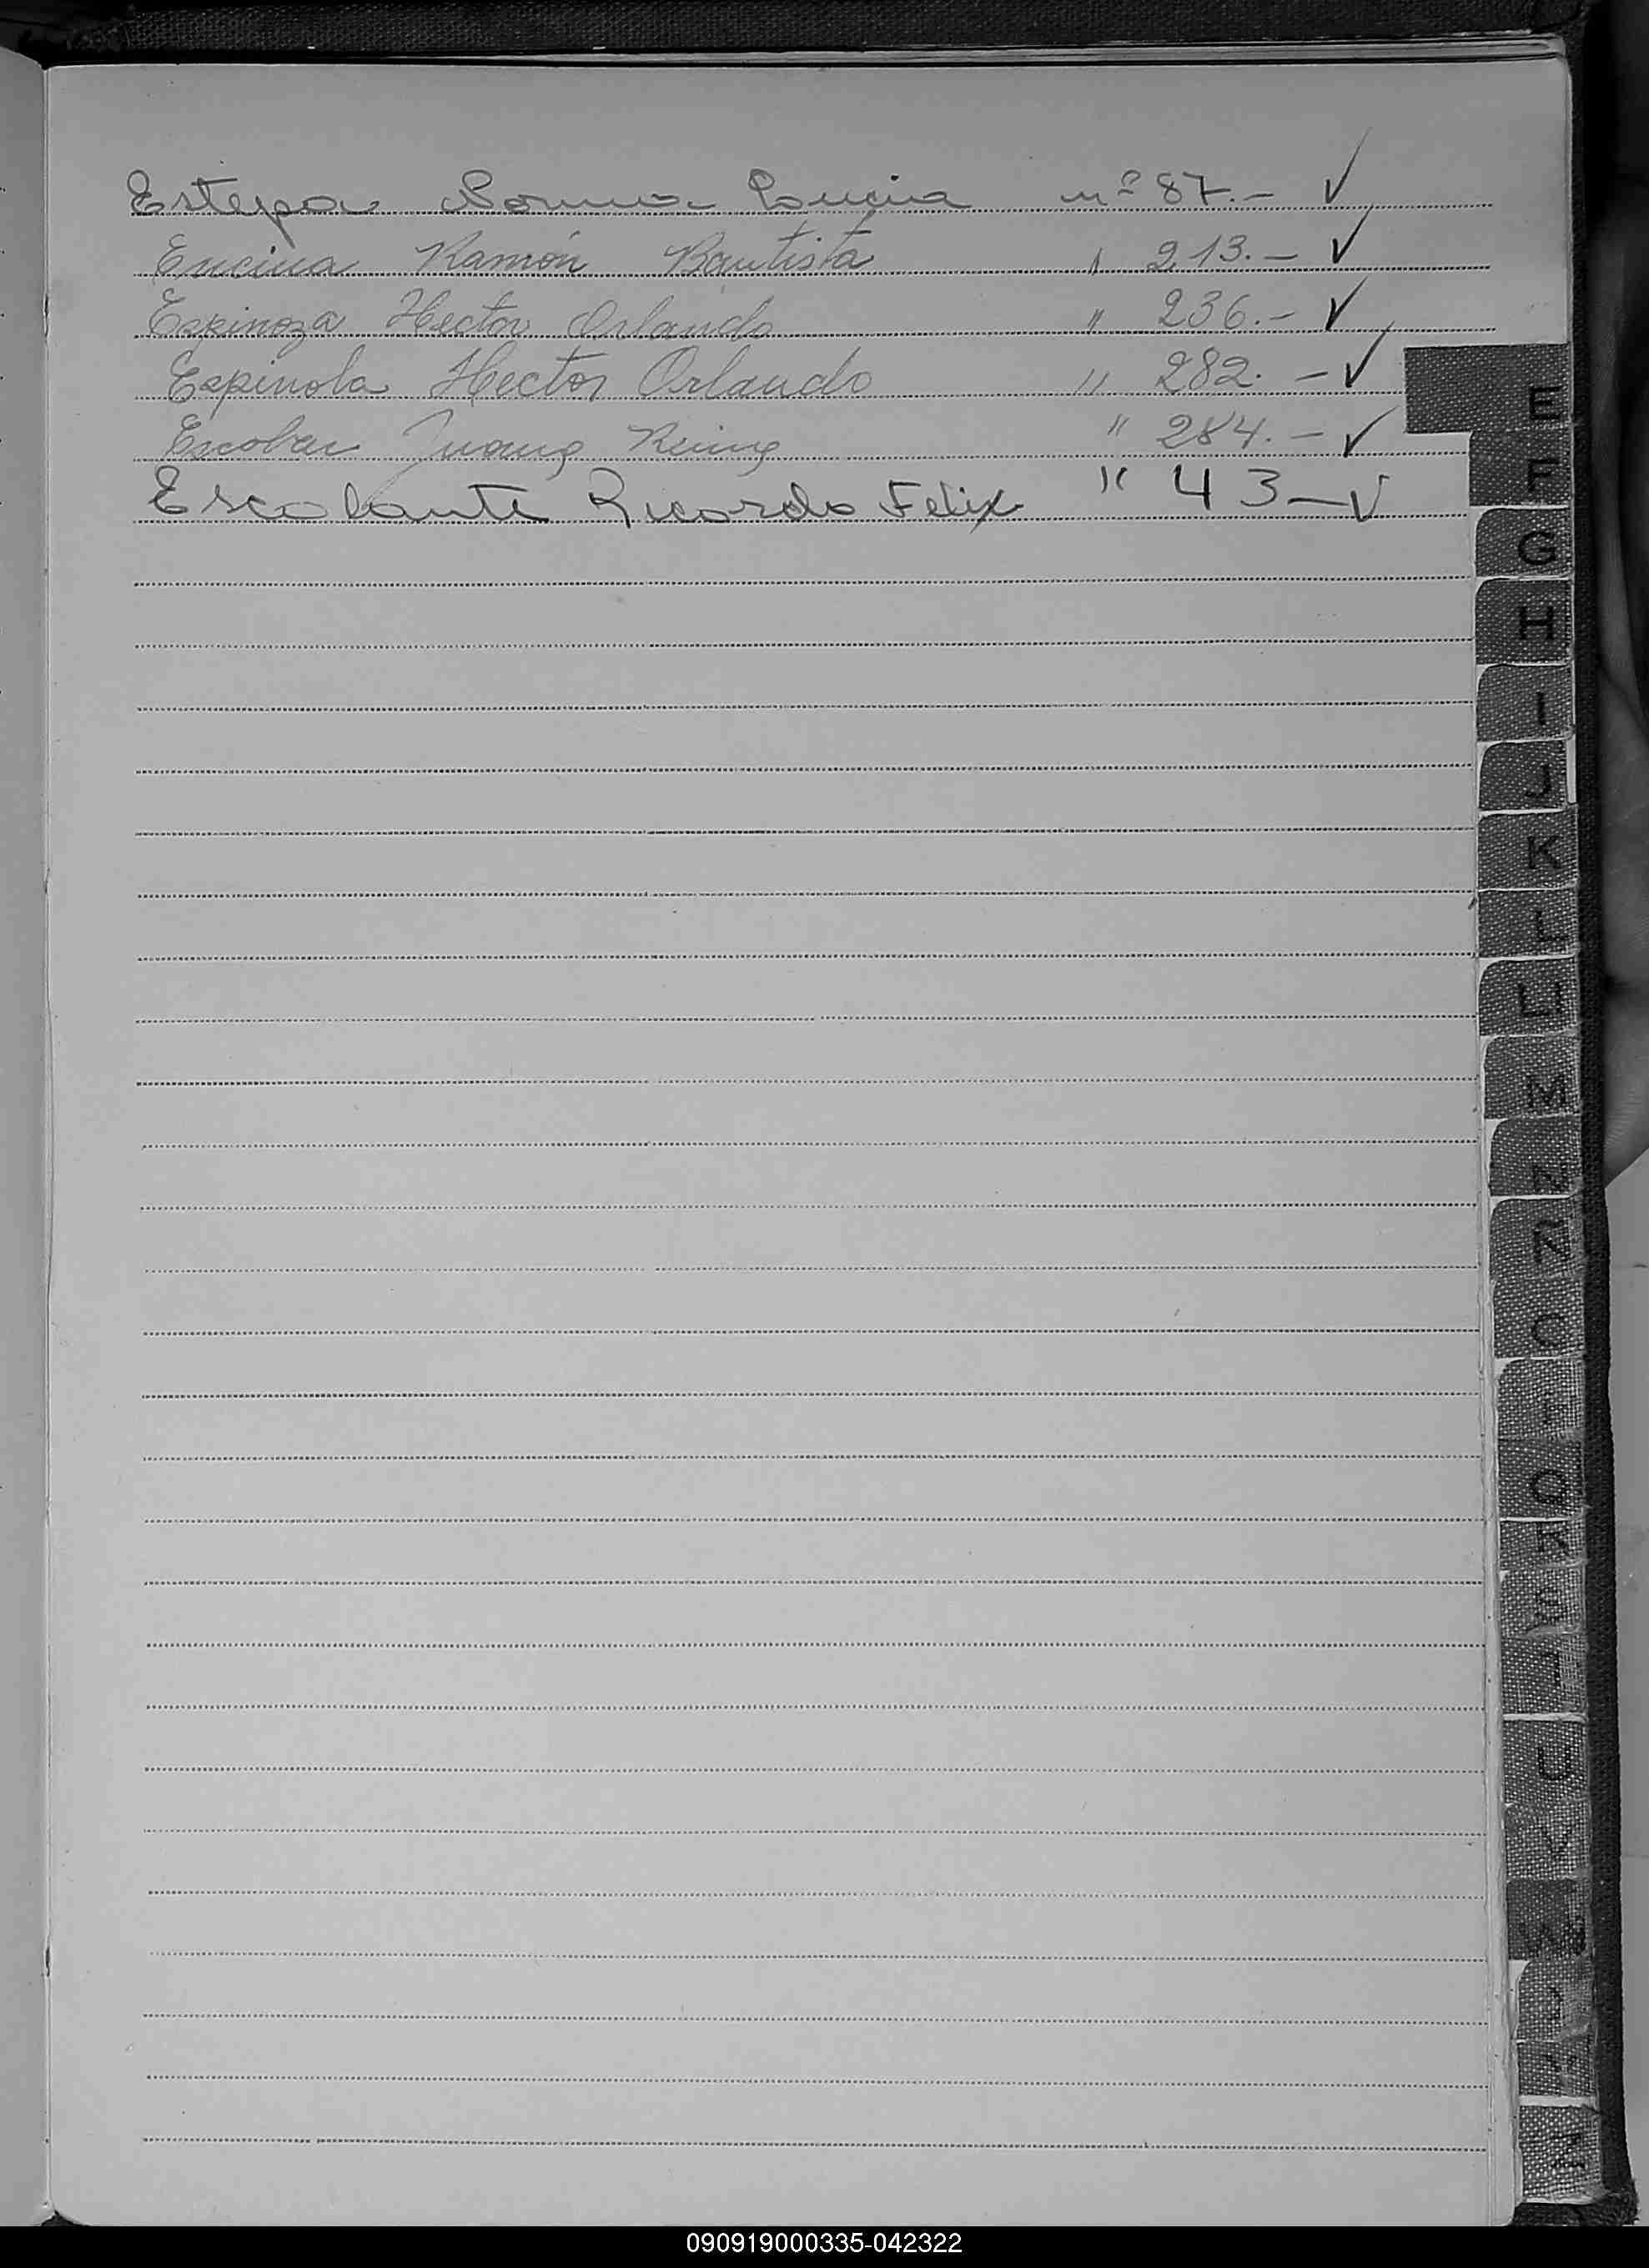 Estepa Norma Lucia nº 87.- ✓
Encina Ramón Bautista " 213.- ✓
Espinoza Hector Orlando " 236.- ✓
Espinola Hector Orlando " 282.- ✓
Escobar " 284.- ✓
Escalante Ricardo Felix " 43- ✓
E
F
G
H
I
J
K
L
LL
M
N
Ñ
O
Q
R
S
T
U
V
W
Z
090919000335-042322